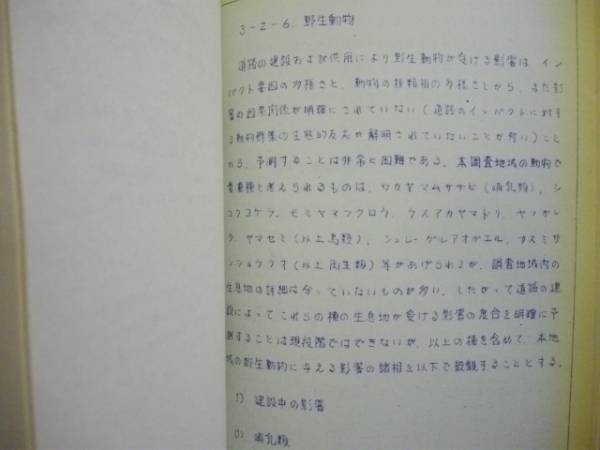 3-2-6. 野生動物
道路の建設および供用により野生動物が受ける影響は、イン
パクト要因の多様さと、動物の種類相の多様さとから、また影
響の因果関係が明確にされていない(道路のインパクトに対す
る動物群集の生態的反応が解明されていないことが多い)こと
から、予測することは非常に困難である。本調査地域の動物で
貴重種と考えられるものは、ワカヤマムササビ(哺乳類)、シ
コクコゲラ、モミヤマフクロウ、ウスアカヤマドリ、ヤツガシ
ラ、ヤマセミ(以上鳥類)、シュレーゲルアオガエル、カスミサ
ンショウウオ(以上両生類)等があげられるが、調査地域内の
生息地の詳細は分っていないものが多い。したがって道路の建
設によってこれらの種の生息地が受ける影響の度合を明確に予
測することは現段階ではできないが、以上の種を含めて、本地
域の野生動物に与える影響の諸相を以下で概観することとする。
1) 建設中の影響
(1) 哺乳類